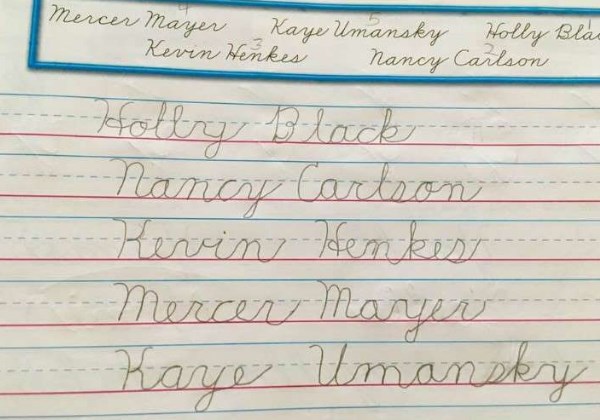 Mercer Mayer Kaye Umansky Holly Bla
4 5 1
Kevin Henkes Nancy Carlson
3 2
Holly Black
Nancy Carlson
Kevin Henkes
Mercer Mayer
Kaye Umansky